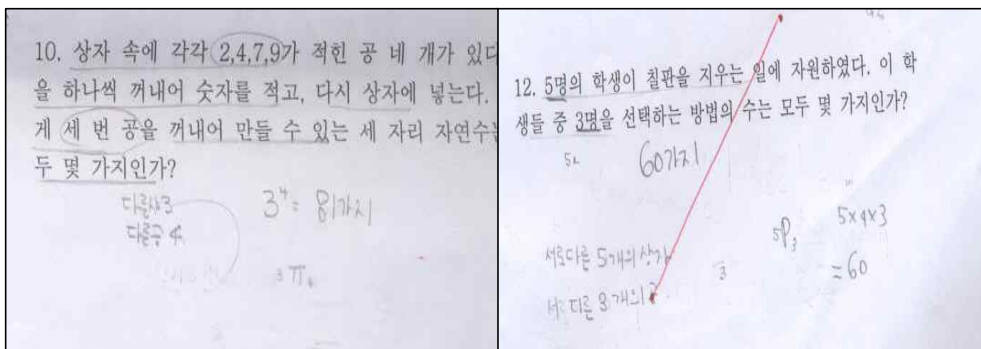 10. 상자 속에 각각 2,4,7,9가 적힌 공 네 개가 있다
을 하나씩 꺼내어 숫자를 적고, 다시 상자에 넣는다.
게 세 번 공을 꺼내어 만들 수 있는 세 자리 자연수는
두 몇 가지인가?
3⁴ = 81가지
다른상 3
다른공 4
₃π₄
12. 5명의 학생이 칠판을 지우는 일에 자원하였다. 이 학
생들 중 3명을 선택하는 방법의 수는 모두 몇 가지인가?
60가지
5×4×3
₅P₃
=60
서로다른 5개의 상자
서로 다른 3개의
3